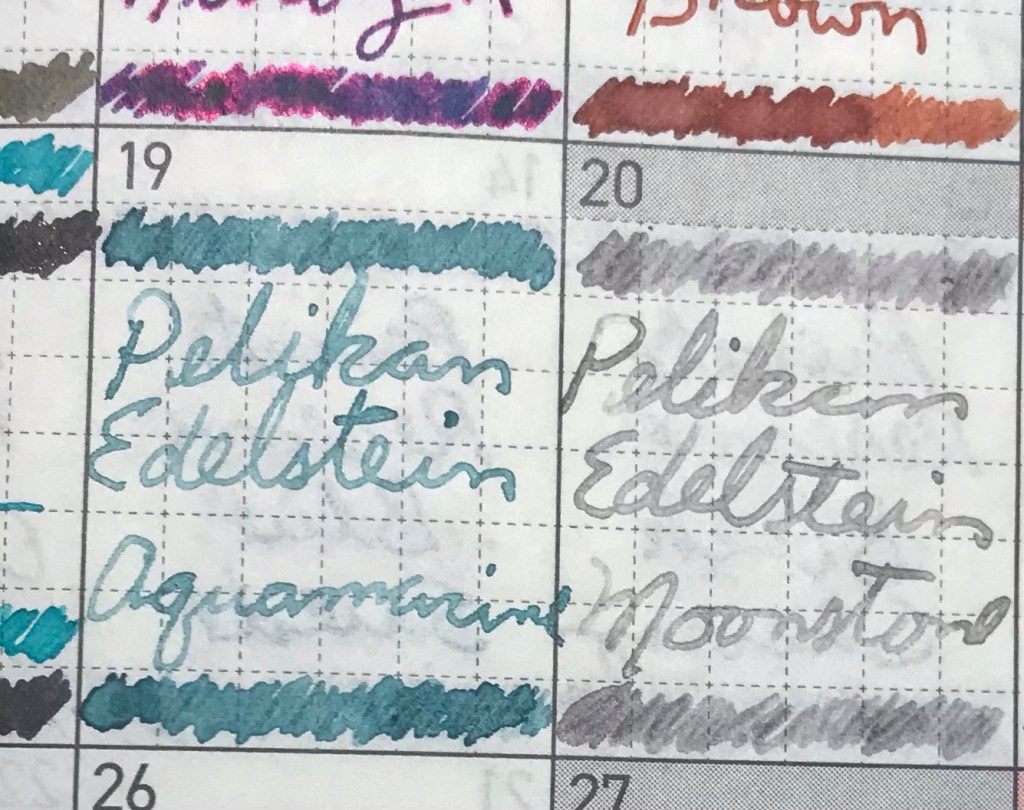 Brown
19
20
Pelikan
Edelstein
Aquamarine
Pelikan
Edelstein
Moonstone
26
27